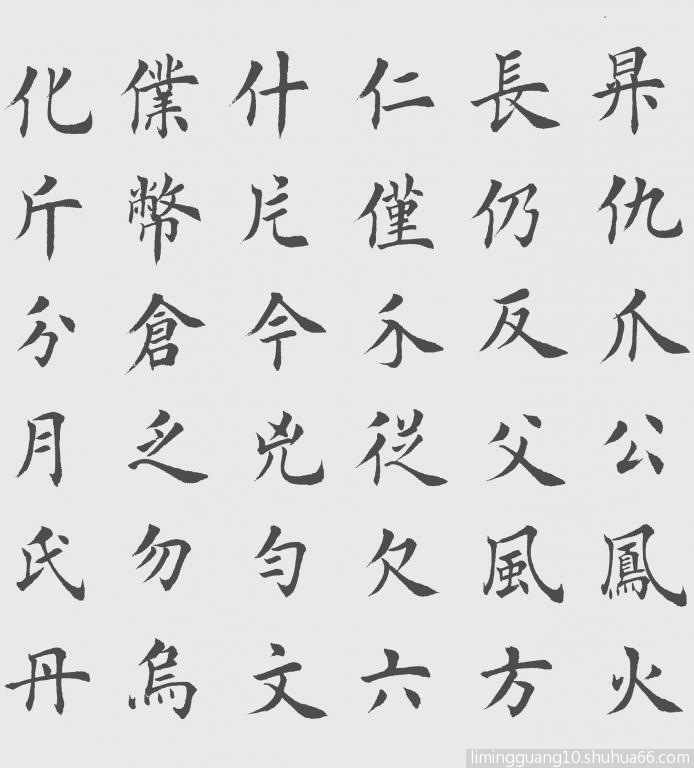 化僕什仁長昇
斤幣片僅仍仇
分倉今介反爪
月乏兇從父公
氏勿匀欠風鳳
丹烏文六方火
limingguang10.shuhua66.com